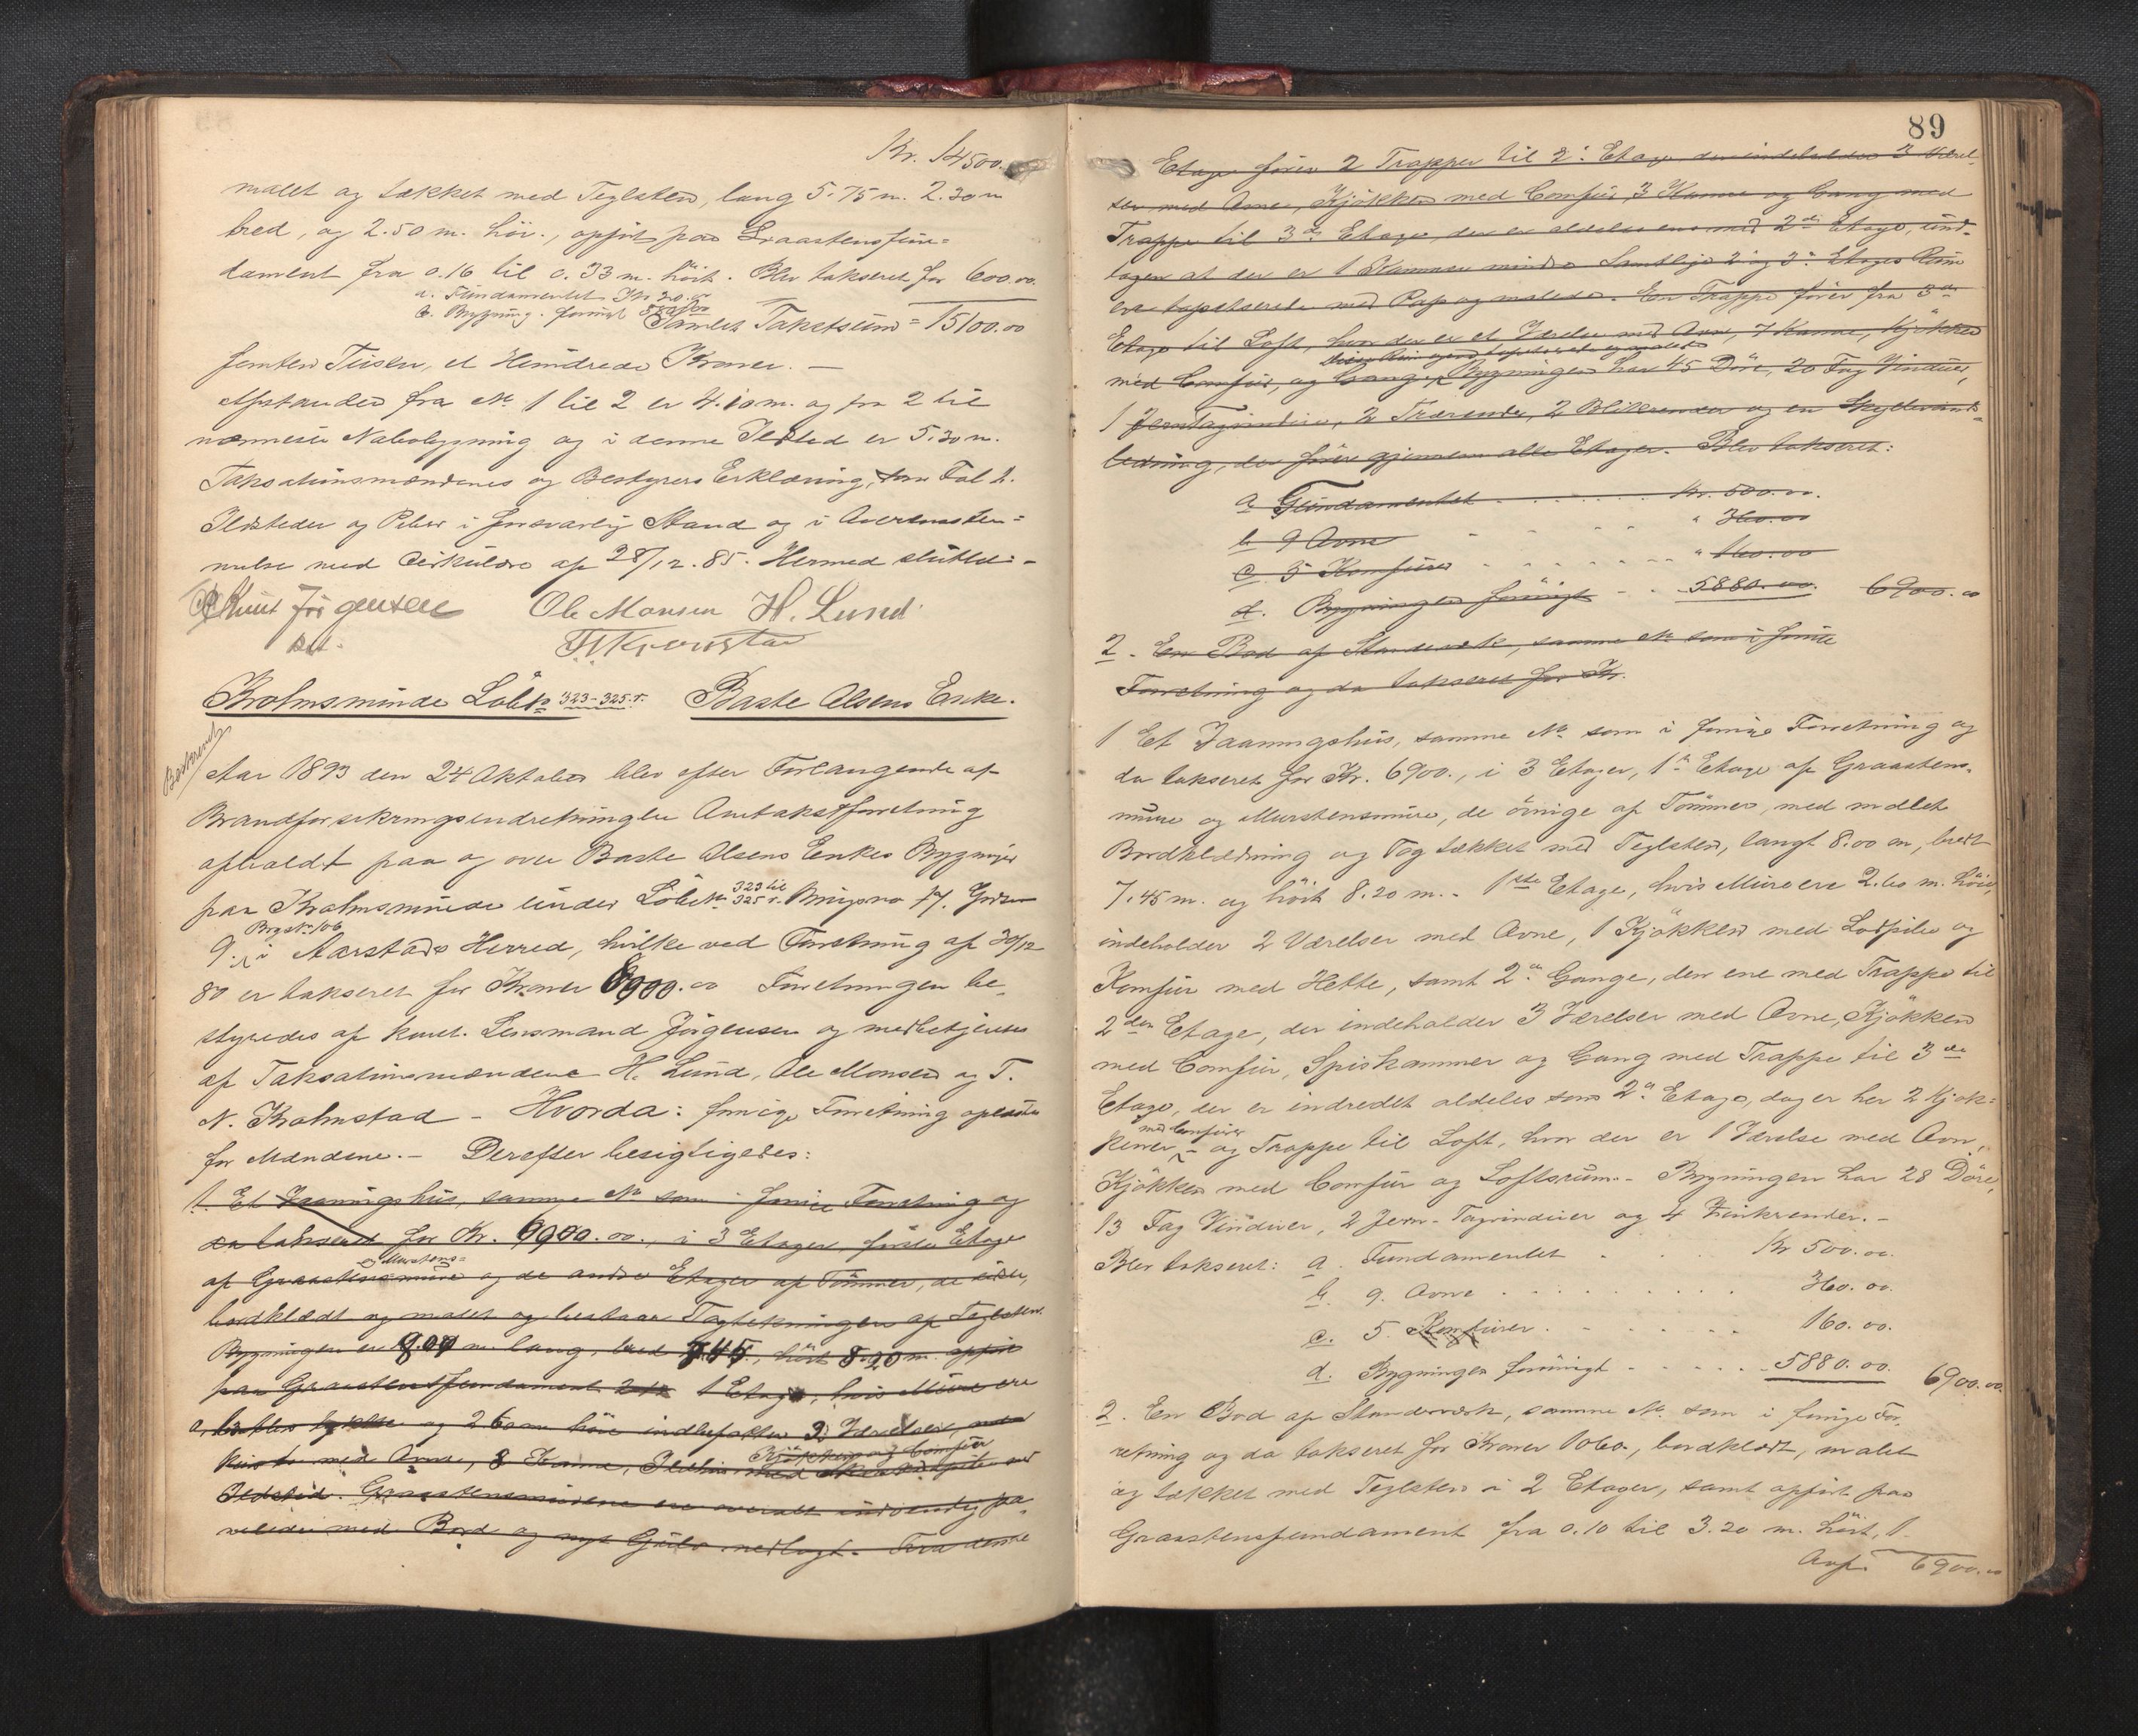 Kr. 14500.
malet og tækket med Teglsten, lang 5.75 m. 2.30 m
bred, og 2.50 m. höi., opfört paa Graastensfun=
dament fra 0.16 til 0.33 m. höit. Blev takseret for 600.00
a. Fundamentet Kr 20.00
b. Bygning. forövrigt 580.00
Samlet Takstsum = 15100.00
femten Tusen, et Hundrede Kroner. —
Afstanden fra No 1 til 2 er 4.10 m. og fra 2 til
nærmeste Nabobygning og i denne Ildsted er 5.30 m.
Taksationsmændenes og Bestyrers Erklæring, Fol 2.
Ildsteder og Piber i forsvarlig Stand og i Overensstem=
melse med Cirkulære af 28/12.85. Hermed sluttet:-
Knut Jörgensen Ole Monsen H. Lund
kst. T N Kroknstad
Krohnsminde Löbeno 323-325.r. Baste Olsens Enke.
Aar 1893 den 24 Oktober blev efter Forlangende af
Brandforsikringsindretningen Omtakstforretning
afholdt paa og over Baste Olsens Enkes Bygninger
paa Krohnsminde under Löbeno 323 til 325 r. Brugsno 17. Gaards
Brgsk No 106
9. i Aarstads Herred, hvilke ved Forretning af 30/12
80 er takseret for Kroner 6900.00 Forretningen be-
styredes af konst. Lensmand Jörgensen og medbetjentes
af Taksationsmændene H. Lund, Ole Monsen og T.
N. Krohnstad - Hvorda: forrige Forretning oplæstes
for Mændene. - Derefter besigtigedes:
1. Et Vaaningshus, samme No som i forrige Forretning og
da takseret for Kr. 6900.00., i 3 Etager, förste Etage
og Murstens=
af Graastensmure og de andre Etager af Tömmer, de
bordklædt og malet og bestaar Tagtekningen af Teglsten.
Bygningen er 8.00 m. lang, bred 7.45, höit 8.20 m. opfört
paa Graastensfundament 1 Etage, hvis Mure ere
og 2.60 m höie indbefatter 2 Værelser,
Kjökken og Comfur
med Ovne, 8
Ildsted. Graastensmurene ere overalt indvendig pa-
nelede med Bord og nyt Gulv nedlagt. Fra denne
89
Etage förer 2 Trapper til 2. Etage der indeholder 3 Værel-
ser med Ovne, Kjökken med Comfur, 3 Kamre og Gang med
Trappe til 3de Etage, der er aldeles ens med 2di Etage, und-
tagen at der er 1 Kammer mindre Samtlige 2 og 3. Etages Rum
ere tapetserede med Pap og malede. En Trappe förer fra 3de
Etage til Loft, hvor der er et Værelse med Ovn, 7 Kamre, Kjökken
disse Rum ogsaa tapetserede og malede
med Comfur, og Gange, Bygningen har 45 Döre, 20 Fag Vinduer,
1 Jerntagvindue, 2 Trærender, 2 Blikrender og en Skyllevands-
ledning, der förer gjennem alle Etager. Blev takseret:
a Fundamentet . . . . Kr. 500.00.
b 9 Ovne - - - " 360.00
c. 5 Komfurer - - - " 160.00
d. Bygningen forövrigt - - 5880.00. 6900.00
2. En Bod af Stenderværk, samme No som i forrige
Forretning og da takseret for Kr.
1 Et Vaaningshus, samme No som i forrige Forretning og
da takseret for Kr. 6900., i 3 Etager, 1ste Etage af Graastens-
mure og Murstensmure, de övrige af Tömmer, med malet
Bordklædning og Tag tækket med Teglsten, langt 8.00 m, bredt
7.45 m. og höit 8.20 m. - 1ste Etage, hvis Mure ere 2.60 m. höie,
indeholder 2 Værelser med Ovne, 1 Kjökken med Lodpibe og
Komfur med Hette, samt 2 Gange, den ene med Trappe til
2den Etage, der indeholder 3 Værelser med Ovne, Kjökken
med Comfur, Spiskammer og Gang med Trappe til 3de
Etage, der er indredet aldeles som 2. Etage, dog er her 2 Kjök=
med Comfurer
kener - og Trappe til Loft, hvor der er 1 Værelse med Ovn,
Kjökken med Comfur og Loftsrum. - Bygningen har 28 Döre,
13 Fag Vinduer, 2 Jern-Tagvinduer og 4 Zinkrender. -
Blev takseret: a. Fundamentet . . . Kr 500.00.
b. 9. Ovne . . . . . 360.00.
c. 5. Komfurer. - - - - 160.00.
d. Bygningen forövrigt - - - - 5880.00. 6900.00
2. En Bod af Stenderværk, samme No. som i forrige For-
retning og da takseret for Kroner 1060., bordklædt, malet
og tækket med Teglsten i 2 Etager, samt opfört paa
Graastensfundament fra 0.10 til 3.20 m. höit, 1.
Ovf. 6900.00